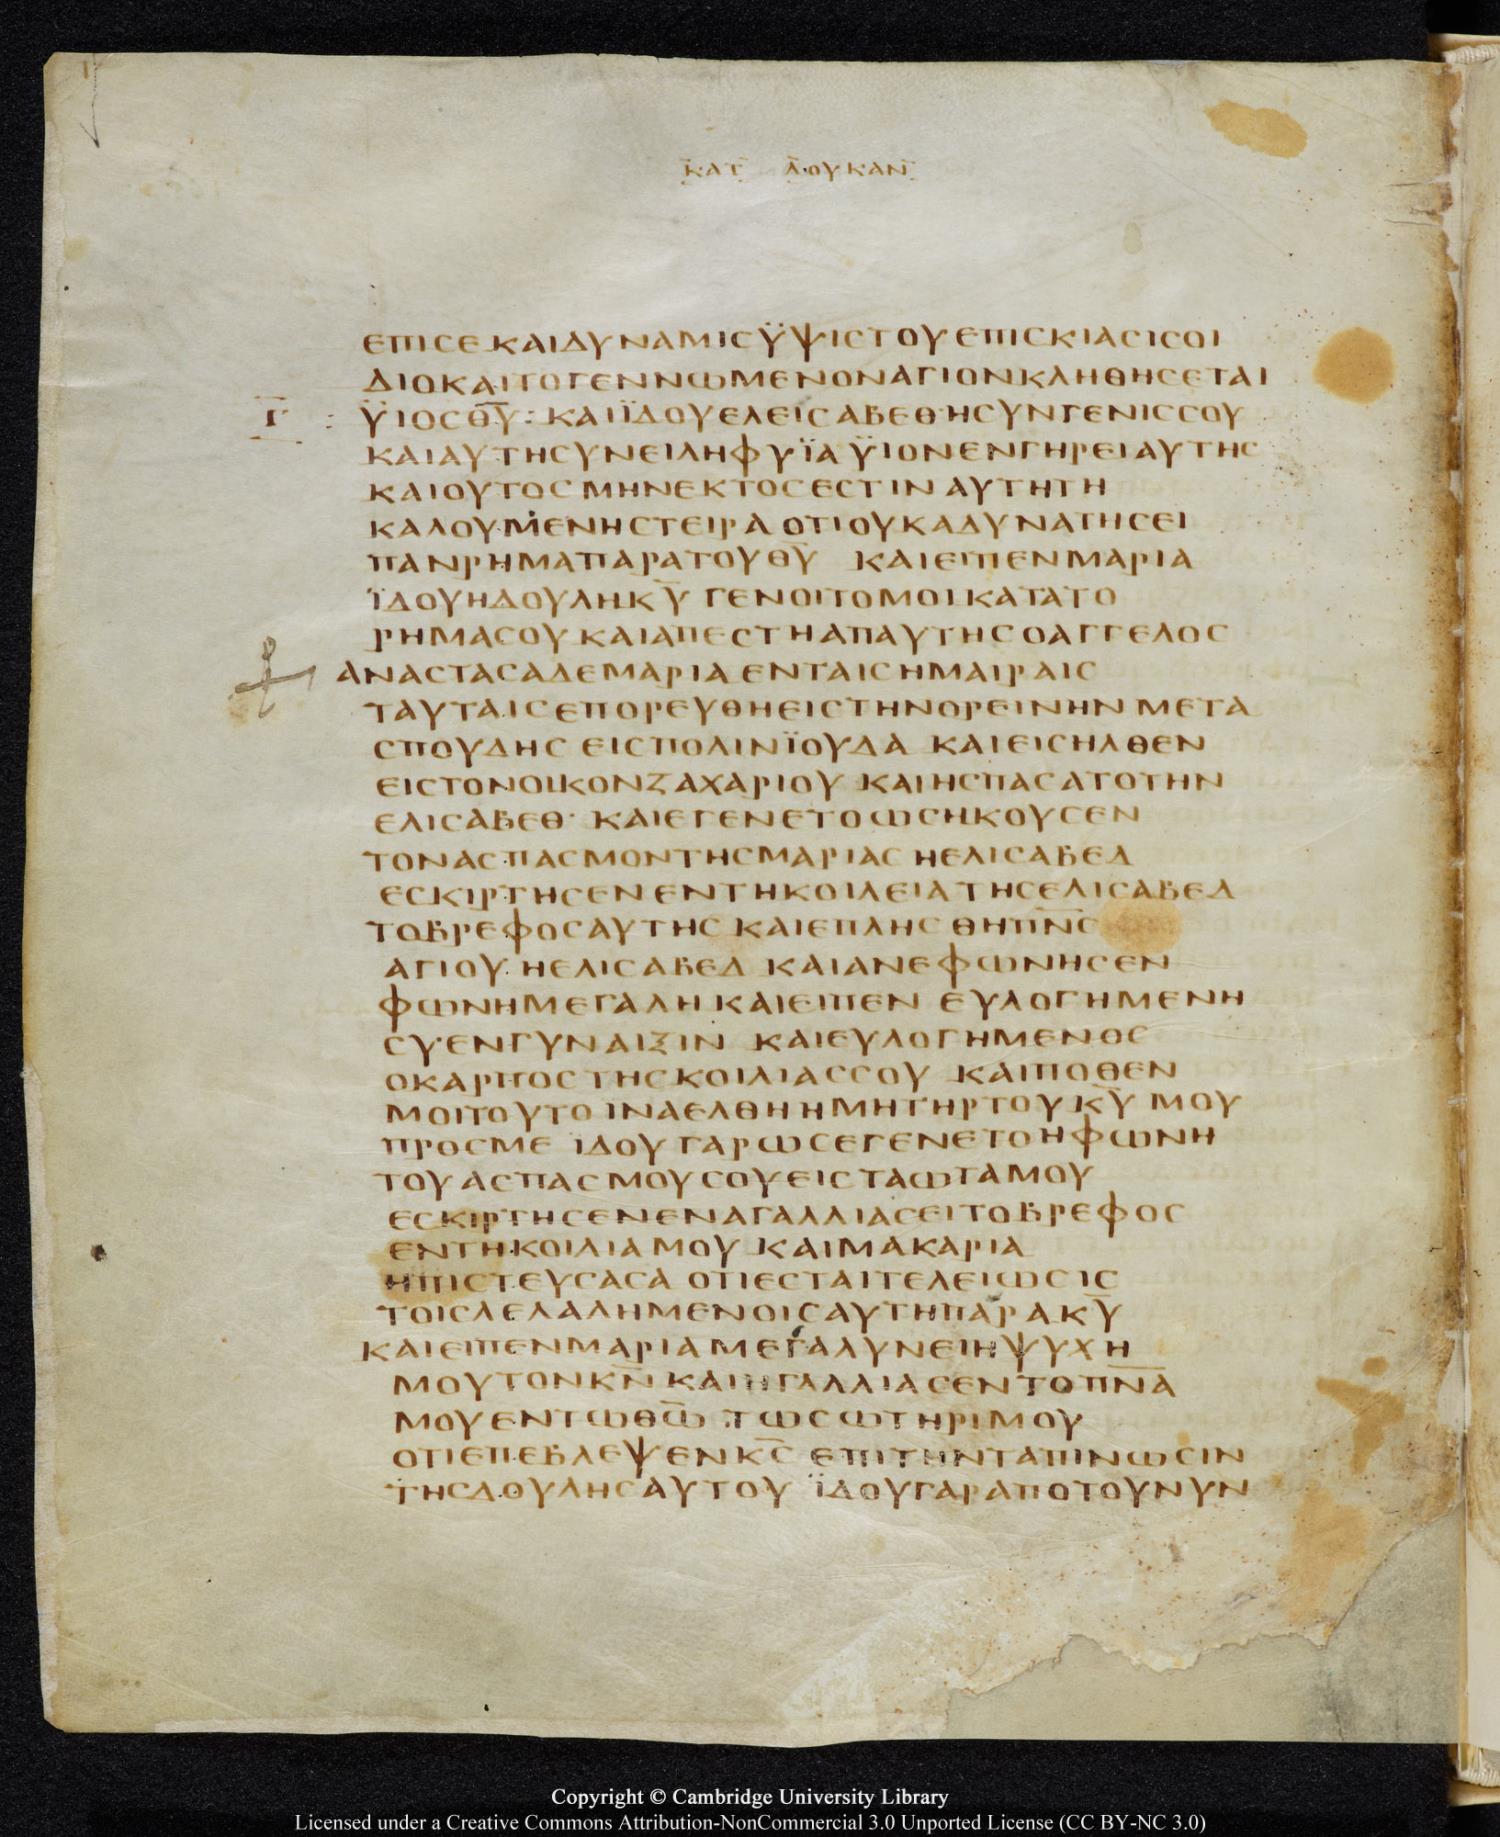 ΚΑΤ ΛΟΥΚΑΝ
ΕΠΙϹΕ ΚΑΙΔΥΝΑΜΙϹΫΨΙϹΤΟΥΕΠΙϹΚΙΑϹΙϹΟΙ
ΔΙΟΚΑΙΤΟΓΕΝΝΩΜΕΝΟΝΑΓΙΟΝΚΛΗΘΗϹΕΤΑΙ
Γ ΫΙΟϹΘ̅Υ̅: ΚΑΙΪΔΟΥΕΛΕΙϹΑΒΕΘΗϹΥΝΓΕΝΙϹϹΟΥ
ΚΑΙΑΥΤΗϹΥΝΕΙΛΗΦΥΪΑΫΙΟΝΕΝΓΗΡΕΙΑΥΤΗϹ
ΚΑΙΟΥΤΟϹΜΗΝΕΚΤΟϹΕϹΤΙΝΑΥΤΗΤΗ
ΚΑΛΟΥΜΕΝΗϹΤΕΙΡΑ ΟΤΙΟΥΚΑΔΥΝΑΤΗϹΕΙ
ΠΑΝΡΗΜΑΠΑΡΑΤΟΥΘ̅Υ̅ ΚΑΙΕΙΠΕΝΜΑΡΙΑ
ΪΔΟΥΗΔΟΥΛΗΚ̅Υ̅ ΓΕΝΟΙΤΟΜΟΙΚΑΤΑΤΟ
ΡΗΜΑϹΟΥ ΚΑΙΑΠΕϹΤΗΑΠΑΥΤΗϹΟΑΓΓΕΛΟϹ
ΑΝΑϹΤΑϹΑΔΕΜΑΡΙΑΕΝΤΑΙϹΗΜΑΙΡΑΙϹ
ΤΑΥΤΑΙϹΕΠΟΡΕΥΘΗΕΙϹΤΗΝΟΡΕΙΝΗΝ ΜΕΤΑ
ϹΠΟΥΔΗϹ ΕΙϹΠΟΛΙΝΪΟΥΔΑ ΚΑΙΕΙϹΗΛΘΕΝ
ΕΙϹΤΟΝΟΙΚΟΝΖΑΧΑΡΙΟΥ ΚΑΙΗϹΠΑϹΑΤΟΤΗΝ
ΕΛΙϹΑΒΕΘ· ΚΑΙΕΓΕΝΕΤΟΩϹΗΚΟΥϹΕΝ
ΤΟΝΑϹΠΑϹΜΟΝΤΗϹΜΑΡΙΑϹ ΗΕΛΙϹΑΒΕΔ
ΕϹΚΙΡΤΗϹΕΝ ΕΝΤΗΚΟΙΛΕΙΑΤΗϹΕΛΙϹΑΒΕΔ
ΤΟΒΡΕΦΟϹΑΥΤΗϹ ΚΑΙΕΠΛΗϹΘΗΠ̅Ν̅Ϲ̅
ΑΓΙΟΥ ΗΕΛΙϹΑΒΕΔ ΚΑΙΑΝΕΦΩΝΗϹΕΝ
ΦΩΝΗΜΕΓΑΛΗ ΚΑΙΕΙΠΕΝ ΕΥΛΟΓΗΜΕΝΗ
ϹΥΕΝΓΥΝΑΙΞΙΝ ΚΑΙΕΥΛΟΓΗΜΕΝΟϹ
ΟΚΑΡΠΟϹΤΗϹΚΟΙΛΙΑϹϹΟΥ ΚΑΙΠΟΘΕΝ
ΜΟΙΤΟΥΤΟ ΙΝΑΕΛΘΗΗΜΗΤΗΡΤΟΥΚ̅Υ̅ ΜΟΥ
ΠΡΟϹΜΕ ΙΔΟΥΓΑΡΩϹΕΓΕΝΕΤΟΗΦΩΝΗ
ΤΟΥΑϹΠΑϹΜΟΥϹΟΥΕΙϹΤΑΩΤΑΜΟΥ
ΕϹΚΙΡΤΗϹΕΝΕΝΑΓΑΛΛΙΑϹΕΙΤΟΒΡΕΦΟϹ
ΕΝΤΗΚΟΙΛΙΑΜΟΥ ΚΑΙΜΑΚΑΡΙΑ
ΗΠΙϹΤΕΥϹΑϹΑ ΟΤΙΕϹΤΑΙΤΕΛΕΙΩϹΙϹ
ΤΟΙϹΛΕΛΑΛΗΜΕΝΟΙϹΑΥΤΗΠΑΡΑΚ̅Υ̅
ΚΑΙΕΙΠΕΝΜΑΡΙΑΜΕΓΑΛΥΝΕΙΗΨΥΧΗ
ΜΟΥΤΟΝΚ̅Ν̅ ΚΑΙΗΓΑΛΛΙΑϹΕΝΤΟΠ̅Ν̅Α̅
ΜΟΥΕΝΤΩΘ̅Ω̅ ΤΩϹΩΤΗΡΙΜΟΥ
ΟΤΙΕΠΕΒΛΕΨΕΝΚ̅Ϲ̅ ΕΠΙΤΗΝΤΑΠΙΝΩϹΙΝ
ΤΗϹΔΟΥΛΗϹΑΥΤΟΥ ΪΔΟΥΓΑΡΑΠΟΤΟΥΝΥΝ
Copyright © Cambridge University Library
Licensed under a Creative Commons Attribution-NonCommercial 3.0 Unported License (CC BY-NC 3.0)